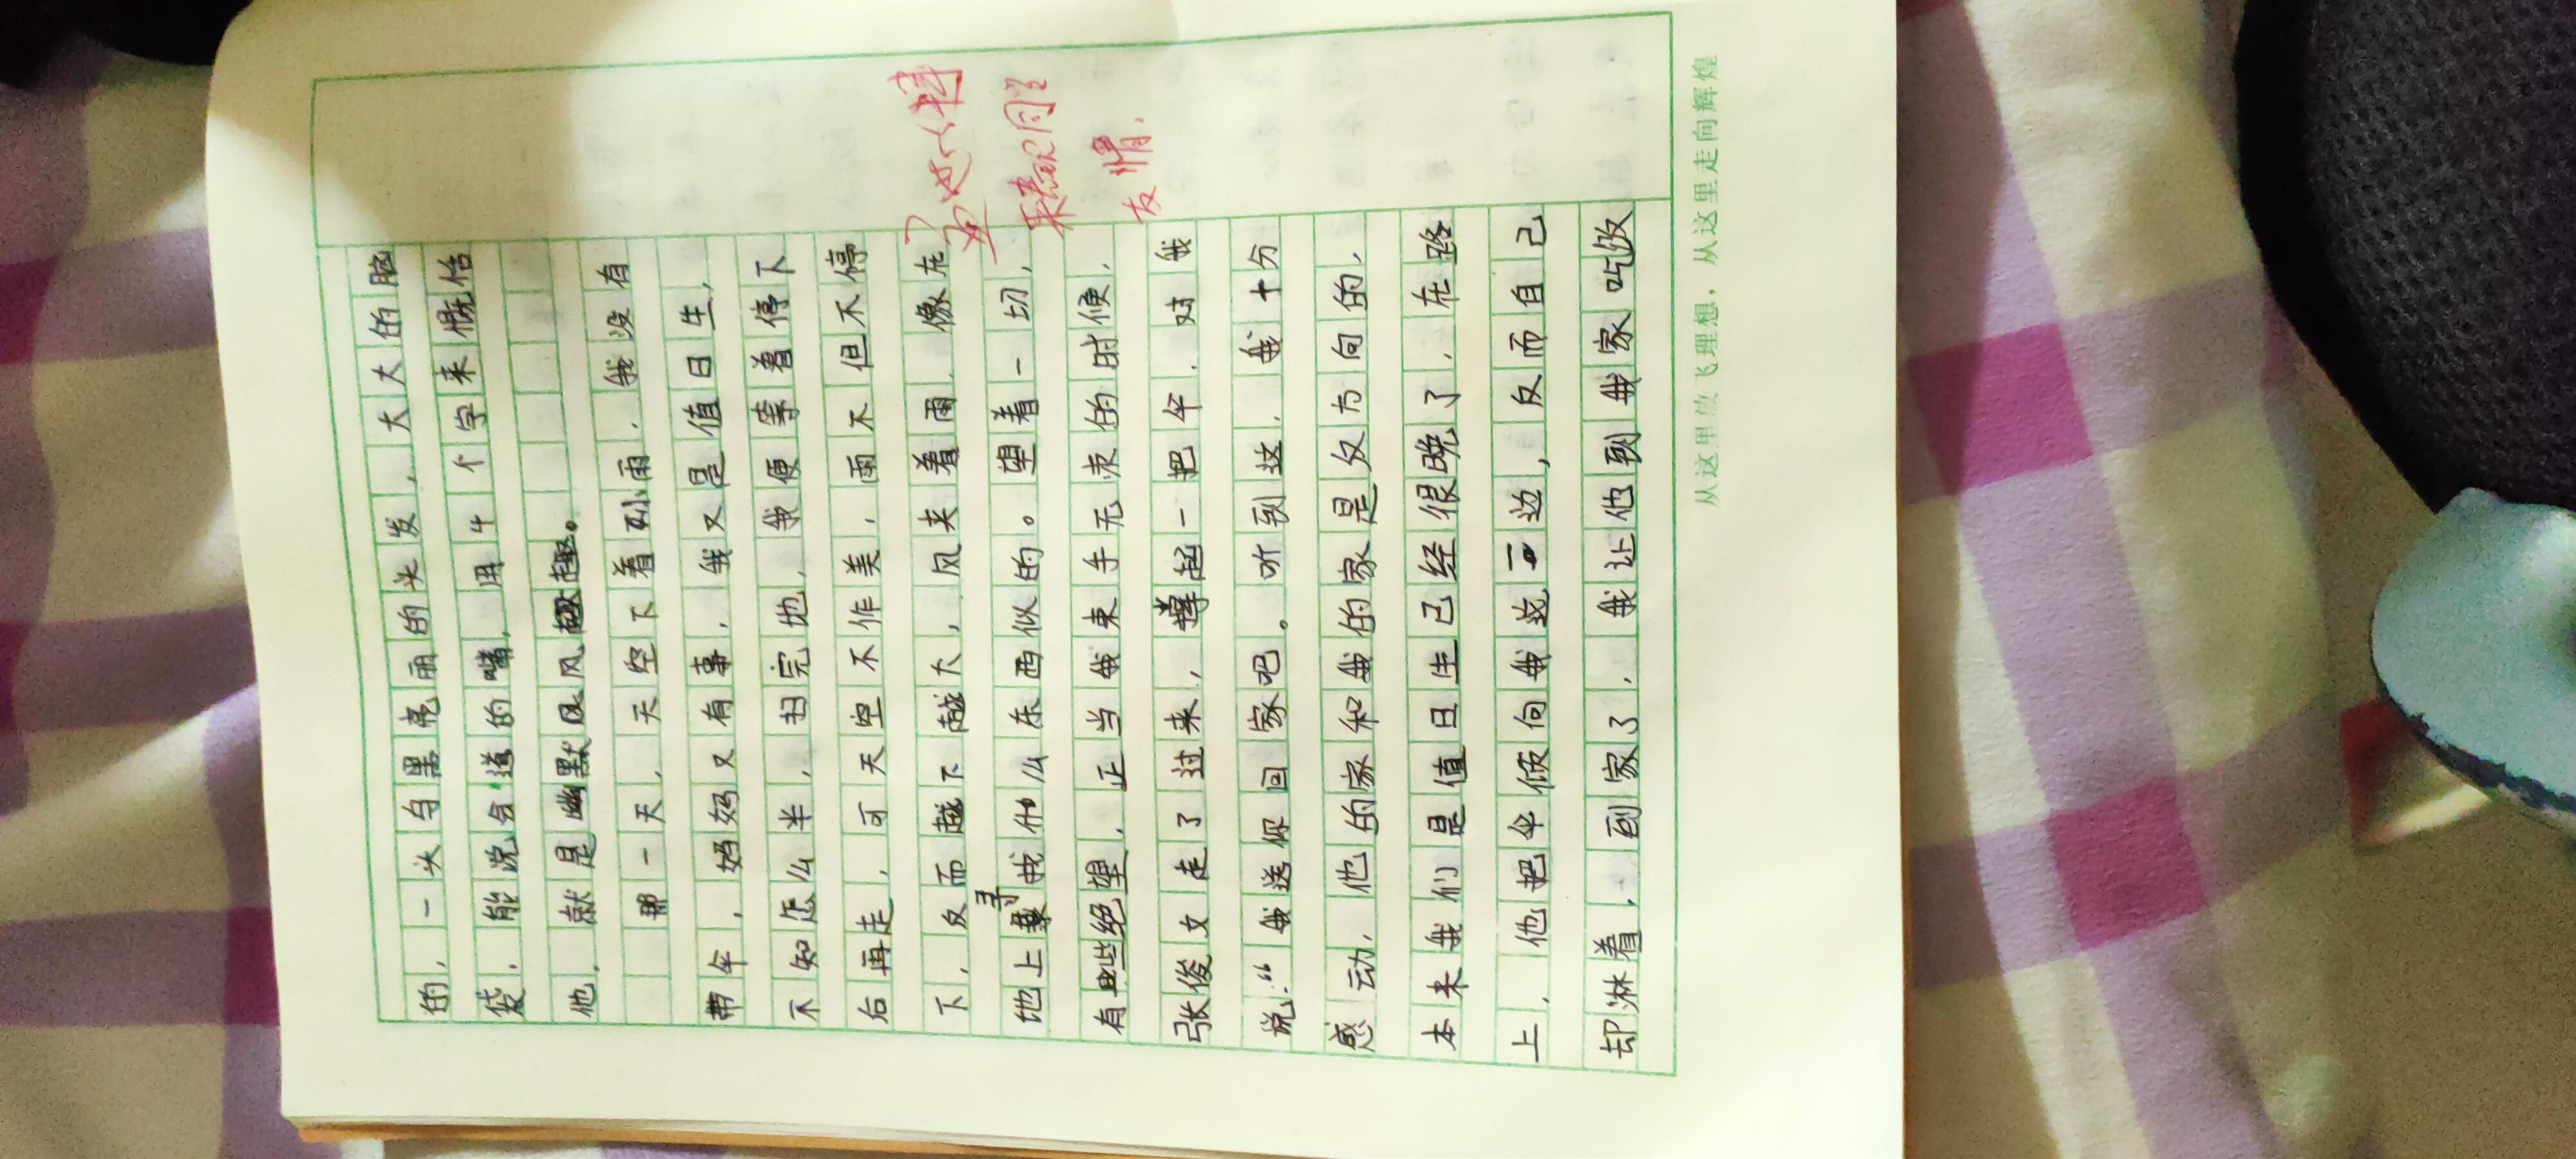 的，一头乌黑亮丽的头发，大大的脑
袋，能说会道的嘴，用4个字来概括
他，就是幽默风趣。
那一天，天空下着小雨，我没有
带伞，妈妈又有事，我又是值日生，
不知怎么半，扫完地，我便等着停下
后再走，可天空不作美，雨不但不停
下，反而越下越大，风夹着雨，像在
地上寻找什么东西似的。望着一切，
有些绝望，正当我束手无策的时候，
张俊文走了过来，撑起一把伞，对我
说：“我送你回家吧。听到这，我十分
感动，他的家和我的家是反方向的，
本来我们是值日生已经很晚了，在路
上，他把伞倾向我这一边，反而自己
却淋着，到家了，我让他到我家吃饭
友情，
从这里放飞理想，从这里走向辉煌